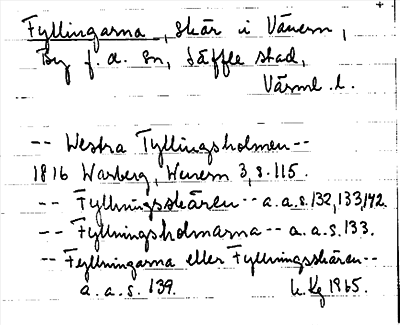 Fyllingarna, skär i Vänern,
By f. d. sn, Säffle stad,
Värml. l.
-- Westra Tyllingsholmen --
1816 Warberg, Wenern 3, s. 115.
-- Fyllningsskären -- a. a. s. 132, 133, 142.
-- Fyllningsholmarna -- a. a. s. 133.
-- Fyllningarna eller Fyllningsskären --
a. a. s. 139. L. Kg 1965.